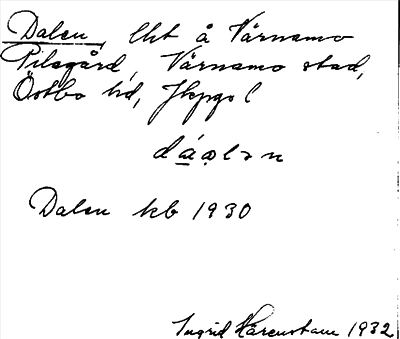 Dalen, lht å Värnamo
Pilagård, Värnamo stad,
Östbo hd, Jkpgs l
dáalən
Dalen kb 1930
Ingrid Härenstam 1932